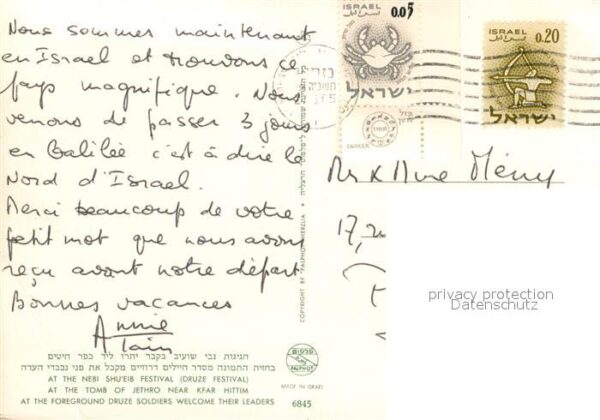 Nous sommes maintenant
en Israel et trouvons ce
pays magnifique. Nous
venons de passer 3 jours
en Galilée c'est à dire le
Nord d'Israel.
Merci beaucoup de votre
petit mot que nous avons
reçu avant notre départ
Bonnes vacances
Annie
Tain
חגיגות נבי שועיב בקבר יתרו ליד כפר חיטים
בחזית התמונה מסדר חיילים דרוזיים מקבל את פני נכבדי העדה
AT THE NEBI SHU'EIB FESTIVAL (DRUZE FESTIVAL)
AT THE TOMB OF JETHRO NEAR KFAR HITTIM
AT THE FOREGROUND DRUZE SOLDIERS WELCOME THEIR LEADERS
COPYRIGHT BY "PALPHOT" HERZLIA
פלפוט
PALPHOT
MADE IN ISRAEL
6845
ISRAEL 0.05
ישראל
CANCER
ISRAEL 0.20
ישראל
Mr & Mme
17,
privacy protection
Datenschutz